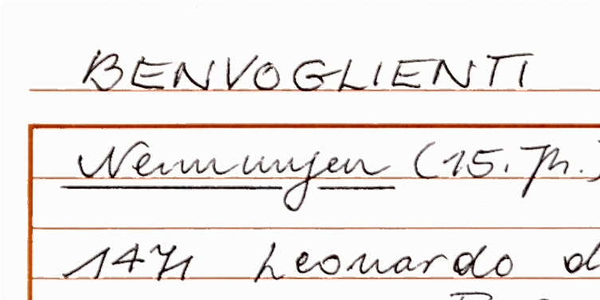 BENVOGLIENTI
Nennungen (15. Jh.)
1471 Leonardo d